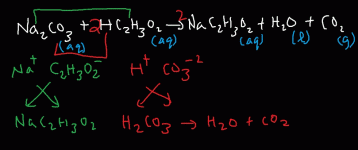 Na₂CO₃ + 2HC₂H₃O₂ → 2NaC₂H₃O₂ + H₂O + CO₂
(aq) (aq) (aq) (l) (g)
Na⁺ C₂H₃O₂⁻ H⁺ CO₃⁻²
NaC₂H₃O₂ H₂CO₃ → H₂O + CO₂